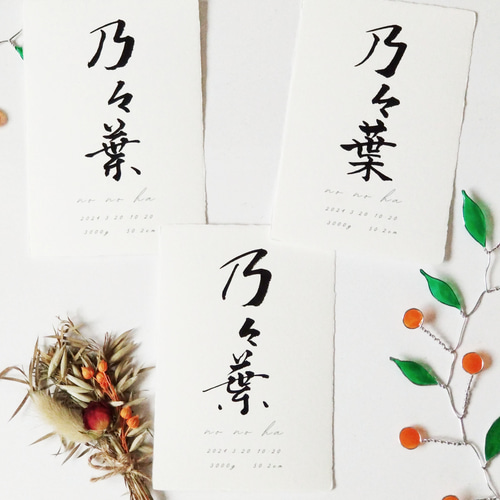 乃々葉
no no ha
2024.2.20 10:20
3000g 50.2cm
乃々葉
no no ha
2024.2.20 10:20
3000g 50.2cm
乃々葉
no no ha
2024.2.20 10:20
3000g 50.2cm